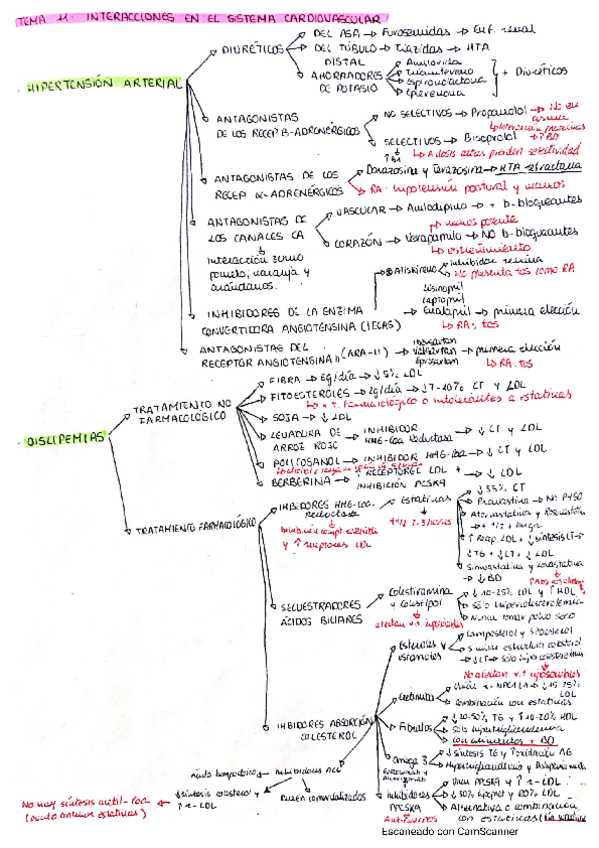 TEMA 11. INTERACCIONES EN EL SISTEMA CARDIOVASCULAR
HIPERTENSIÓN ARTERIAL
DIURÉTICOS
DEL ASA → Furosemidas → Enf. renal
DEL TÚBULO → Tiazidas → HTA
DISTAL
AHORRADORES DE POTASIO
Amilorida
Triamtereno
Espironolactona
Eplerenona
+ Diuréticos
ANTAGONISTAS
DE LOS RECEP β-ADRENÉRGICOS
NO SELECTIVOS → Propanolol → No en asma
SELECTIVOS → Bisoprolol → ↑BD
↳ A dosis altas pierden selectividad
ANTAGONISTAS DE LOS
RECEP α-ADRENÉRGICOS
Doxazosina y Terazosina → HTA refractaria
↳ RA: hipotensión postural y mareos
ANTAGONISTAS DE
LOS CANALES CA
VASCULAR → Amlodipino → + b-bloqueantes
↳ menos potente
CORAZÓN → Verapamilo → NO b-bloqueantes
↳ estreñimiento
Interacción zumo
pomelo, naranja y
arándanos.
Aliskireno
Inhibidor renina
No presenta tos como RA
INHIBIDORES DE LA ENZIMA
CONVERTIDORA ANGIOTENSINA (IECAS)
Lisinopril
captopril
enalapril → primera elección
↳ RA: tos
ANTAGONISTAS DEL
RECEPTOR ANGIOTENSINA II (ARA-II)
Irbesartan
Valsartan
Eprosartan
→ primera elección
↳ RA: tos
DISLIPEMIAS
TRATAMIENTO NO
FARMACOLÓGICO
FIBRA → 6g/día → ↓5% LDL
FITOESTEROLES → 2g/día → ↓7-10% CT y LDL
↳ + T. Farmacológico o intolerantes a estatinas
SOJA → ↓ LDL
LEVADURA DE
ARROZ ROJO
→ INHIBIDOR
HMG-Coa Reductasa
→ ↓ CT y LDL
POLICOSANOL → INHIBIDOR HMG-Coa → ↓ CT y LDL
BERBERINA → ↑ RECEPTORES LDL +
INHIBICIÓN PCSK9
→ ↓ LDL
TRATAMIENTO FARMACOLÓGICO
INHIBIDORES HMG-Coa-
Reductasa
→ Estatinas
y ↑ receptores LDL
t1/2 2-3 horas
↓ 35% CT
Pravastina → No P450
Atorvastatina y Rosuvastatina
→ t 1/2 + larga
↑ Recep. LDL + ↓ síntesis CT
↓ TG + ↓ CT + ↓ LDL
Simvastatina y Lovastatina
→ ↓ BD
SECUESTRADORES
ÁCIDOS BILIARES
Colestiramina
y Colestipol
afectan vit. liposolubles
↓ 10-25% LDL y ↑ HDL
Sólo hipercolesterolemia
Nunca tomar polvo seco
INHIBIDORES ABSORCIÓN
COLESTEROL
Esteroles y
estanoles
Campesterol y Sitosterol
Similar estructura colesterol
↓ CT → Sólo hipercolesterolemia
No afectan vit liposolubles
Ezetimiba
Unión a NPC1L1 → ↓ 15-25%
LDL
Combinación con estatinas
Fibratos
↓ 20-50% TG y ↑ 10-20% HDL
Sólo hipertrigliceridemia
con alimentos + BD
Omega 3
↓ Síntesis TG y ↑ oxidación AG
Inhibidores
PCSK9
Unen PCSK9 y ↑ r-LDL
Alternativa o combinación
con estatinas
Inhibidores ACL
↓ Síntesis colesterol y
↑ r-LDL
Recién comercializados
No hay síntesis acetil-Coa
(punto anterior estatinas)
Escaneado con CamScanner